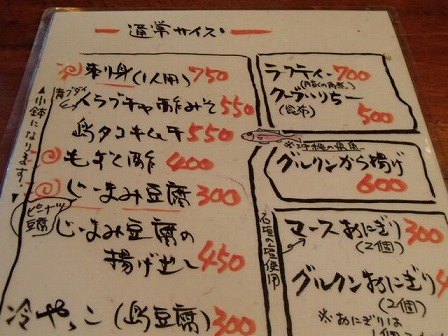 通常サイズ
刺身(1人用) 750
青ブダイ
イラブチャ酢みそ 550
島タコキムチ 550
もずく酢 400
じーまみ豆腐 300
ピーナツ
豆腐
じーまみ豆腐の
揚げ出し 450
冷やっこ(島豆腐) 300
▲小鉢になります!
ラフティー 700
クーブいりちー
(昆布) 500
※沖縄の県魚
グルクンから揚げ
600
石垣の塩使用
マースおにぎり 300
(2個)
グルクンおにぎり 4
(2個)
※おにぎりは